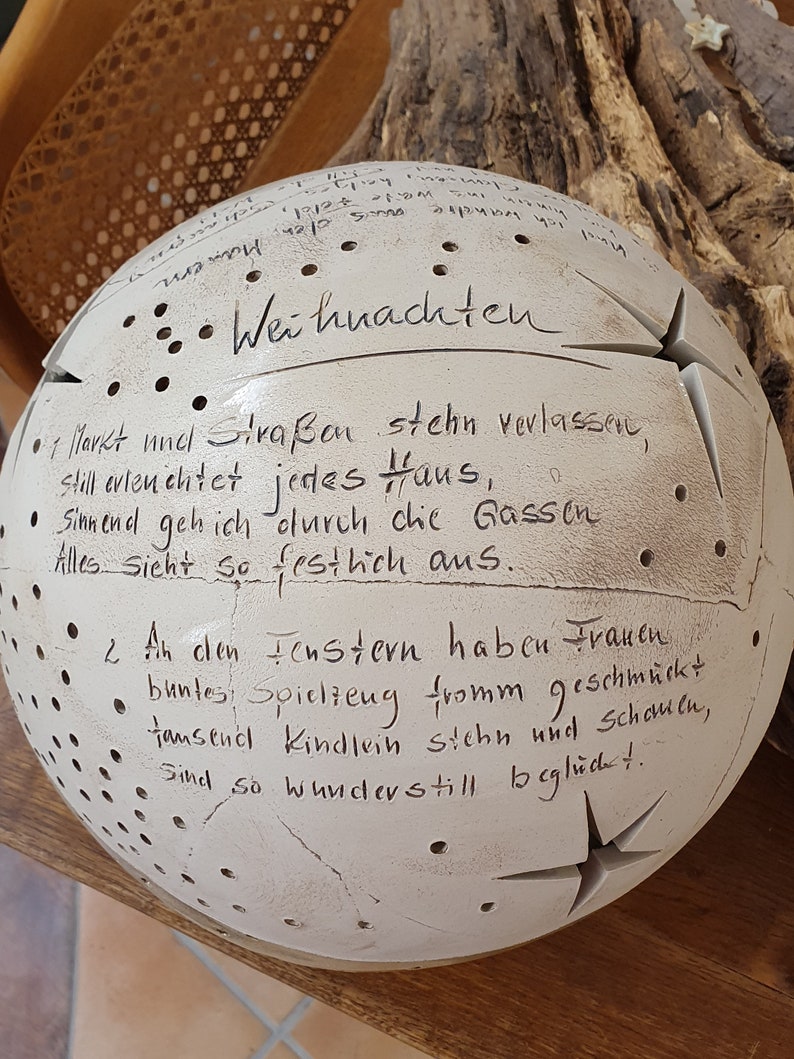 Weihnachten
1 Markt und Straßen stehn verlassen,
still erleuchtet jedes Haus,
Sinnend geh ich durch die Gassen
Alles sieht so festlich aus.
2 An den Fenstern haben Frauen
buntes Spielzeug fromm geschmückt
tausend Kindlein stehn und schauen,
Sind so wunderstill beglückt.
Und ich wandre aus den Mauern
hinein ins weite Feld,